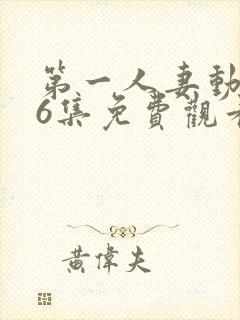 第一人妻動
6集免費觀看
黃偉夫